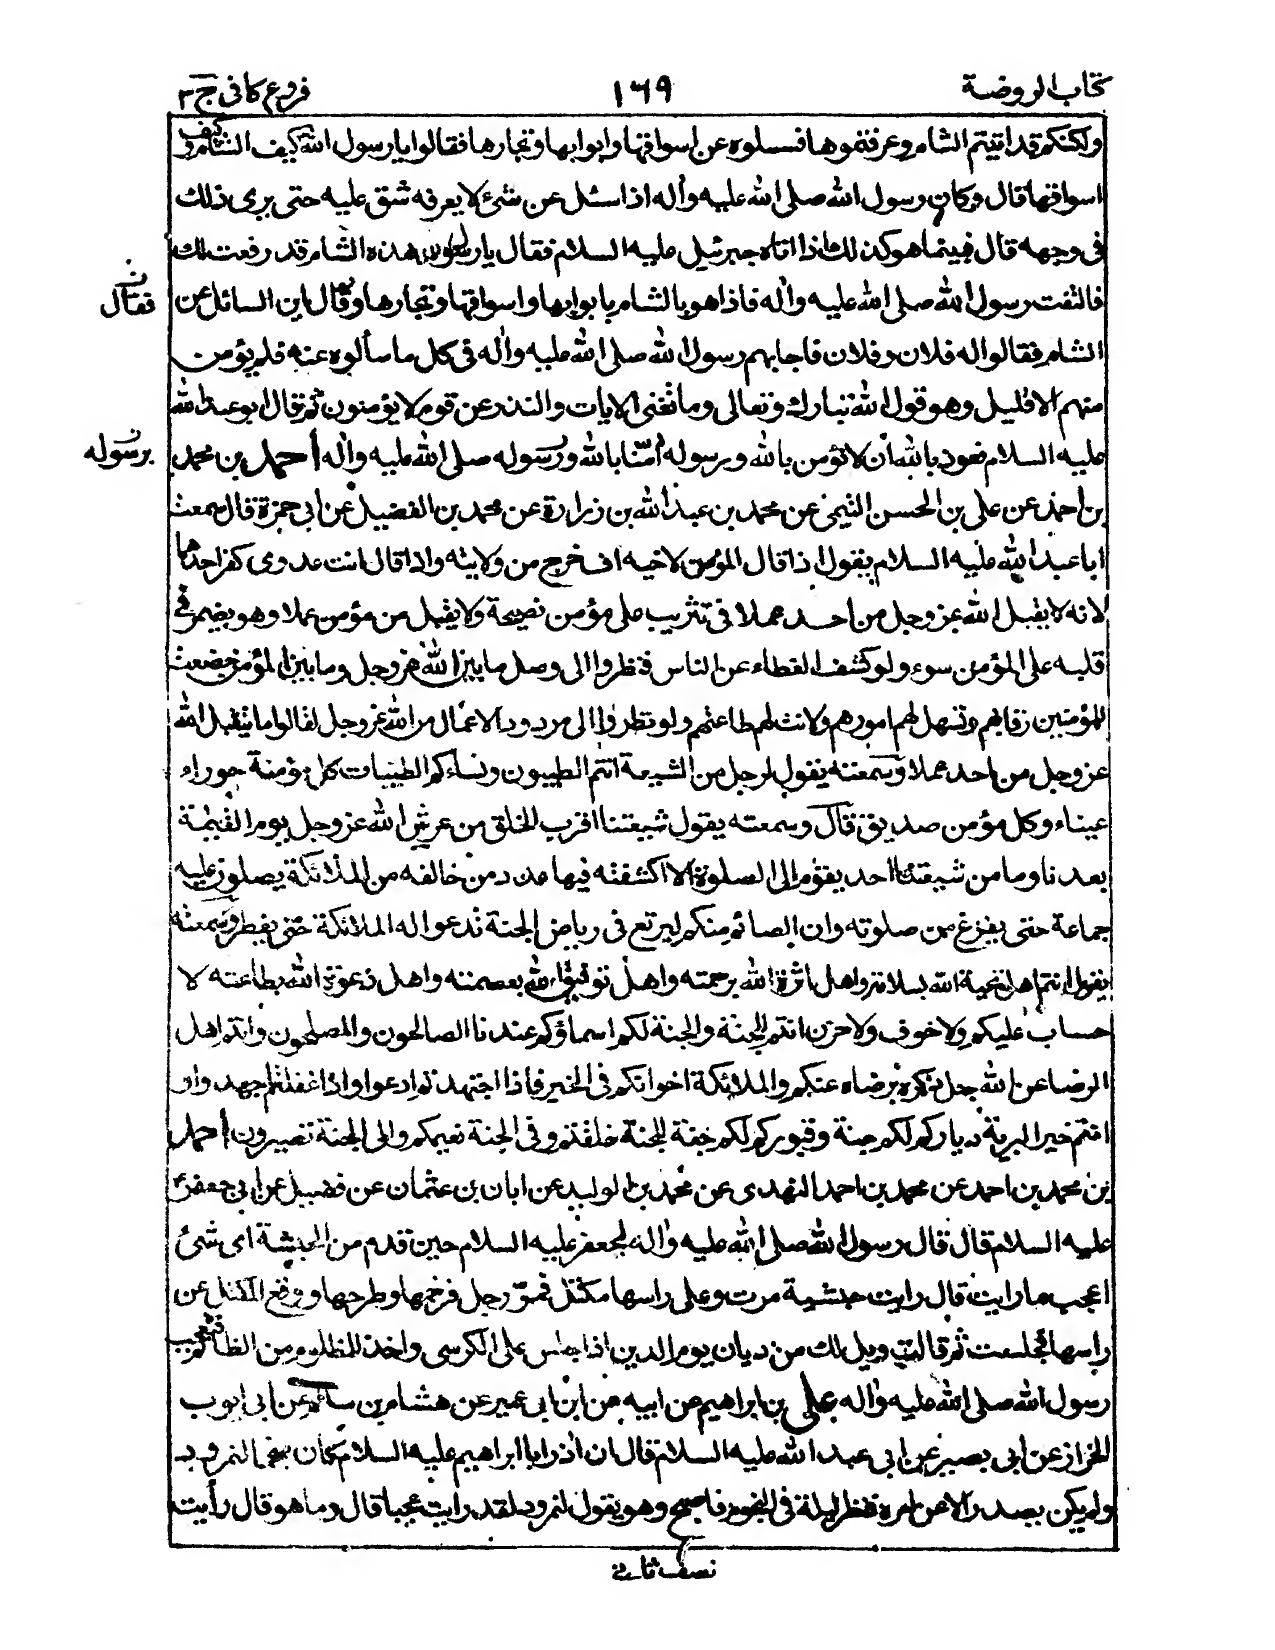 كتاب الروضة
١٦٩
فروع كافى ج ٣
ولكنكم قد اتيتم الشام وعرفتموها فسلوه عن اسواقها وابوابها وتجارها فقالوا يا رسول الله كيف الشام وكيف
اسواقها قال وكان رسول الله صلى الله عليه وآله اذا سئل عن شئ لا يعرفه شق عليه حتى يرى ذلك
فى وجهه قال فبينما هو كذلك اذا اتاه جبرئيل عليه السلام فقال يا رسول الله هذه الشام قد رفعت لك
فالتفت رسول الله صلى الله عليه وآله فاذا هو بالشام بابوابها واسواقها وتجارها وقال اين السائل عن
فقال ن
الشام فقالوا له فلان وفلان فاجابهم رسول الله صلى الله عليه وآله فى كل ما سألوه عنه فلم يؤمن
منهم الا قليل وهو قول الله تبارك وتعالى وما تغنى الايات والنذر عن قوم لا يؤمنون ثم قال ابو عبد الله
عليه السلام نعوذ بالله ان لا نؤمن بالله وبرسوله امنّا بالله ورسوله صلى الله عليه وآله احمد بن محمد
برسوله ن
بن احمد عن على بن الحسن التيمى عن محمد بن عبد الله بن زرارة عن محمد بن الفضيل عن ابى حمزة قال سمعت
ابا عبد الله عليه السلام يقول اذا قال المؤمن لاخيه اف خرج من ولايته واذا قال انت عدوى كفر احدهما
لانه لا يقبل الله عز وجل من احد عملا فى تثريب على مؤمن نصيحة ولا يقبل من مؤمن عملا وهو يضمر فى
قلبه على المؤمن سوء ولو كشف الغطاء عن الناس فنظروا الى وصل ما بين الله عز وجل وما بين المؤمن خضعت
للمؤمنين رقابهم وتسهل لهم امورهم ولانت لهم طاعتهم ولو نظروا الى مردود الاعمال من الله عز وجل لقالوا ما يتقبل الله
عز وجل من احد عملا وسمعته يقول لرجل من الشيعة انتم الطيبون ونساءكم الطيبات كل مؤمنة حوراء
عيناء وكل مؤمن صديق قال وسمعته يقول شيعتنا اقرب الخلق من عرش الله عز وجل يوم القيمة
بعدنا وما من شيعتنا احد يقوم الى الصلوة الا اكتنفته فيها عدد من خالفه من الملائكة يصلون عليه
جماعة حتى يفرغ من صلوته وان الصائم منكم ليرتع فى رياض الجنة تدعو له الملائكة حتى يفطر وسمعته
يقول انتم اهل تحية الله بسلامه واهل اثرة الله برحمته واهل توفيق الله بعصمته واهل دعوة الله بطاعته لا
حساب عليكم ولا خوف ولا حزن انتم للجنة والجنة لكم اسماؤكم عندنا الصالحون والمصلحون وانتم اهل
الرضا عن الله جل ذكره برضاه عنكم والملائكة اخوانكم فى الخير فاذا اجتهدتم ادعوا واذا غفلتم اجهدوا و
انتم خير البرية دياركم لكم جنة وقبوركم لكم جنة للجنة خلقتم وفى الجنة نعيمكم والى الجنة تصيرون احمد
بن محمد بن احمد عن محمد بن احمد النهدى عن محمد بن الوليد عن ابان بن عثمان عن فضيل عن ابى جعفر
عليه السلام قال قال رسول الله صلى الله عليه وآله لجعفر عليه السلام حين قدم من الحبشة اى شئ
اعجب ما رايت قال رايت حبشية مرت وعلى راسها مكتل فمرّ رجل فزحمها وطرحها ووقع المكتل عن
راسها فجلست ثم قالت ويل لك من ديان يوم الدين اذا جلس على الكرسى واخذ للمظلوم من الظالم فتعجب
رسول الله صلى الله عليه وآله على بن ابراهيم عن ابيه عن ابن ابى عمير عن هشام بن سالم عن ابى ايوب
الخزاز عن ابى بصير عن ابى عبد الله عليه السلام قال ان اذر ابا ابراهيم عليه السلام كان منجما لنمرود
ولم يكن يصدر الا عن امره فنظر ليلة فى النجوم فاصبح وهو يقول لنمرود لقد رايت عجبا قال وما هو قال رأيت
نصف ثانى